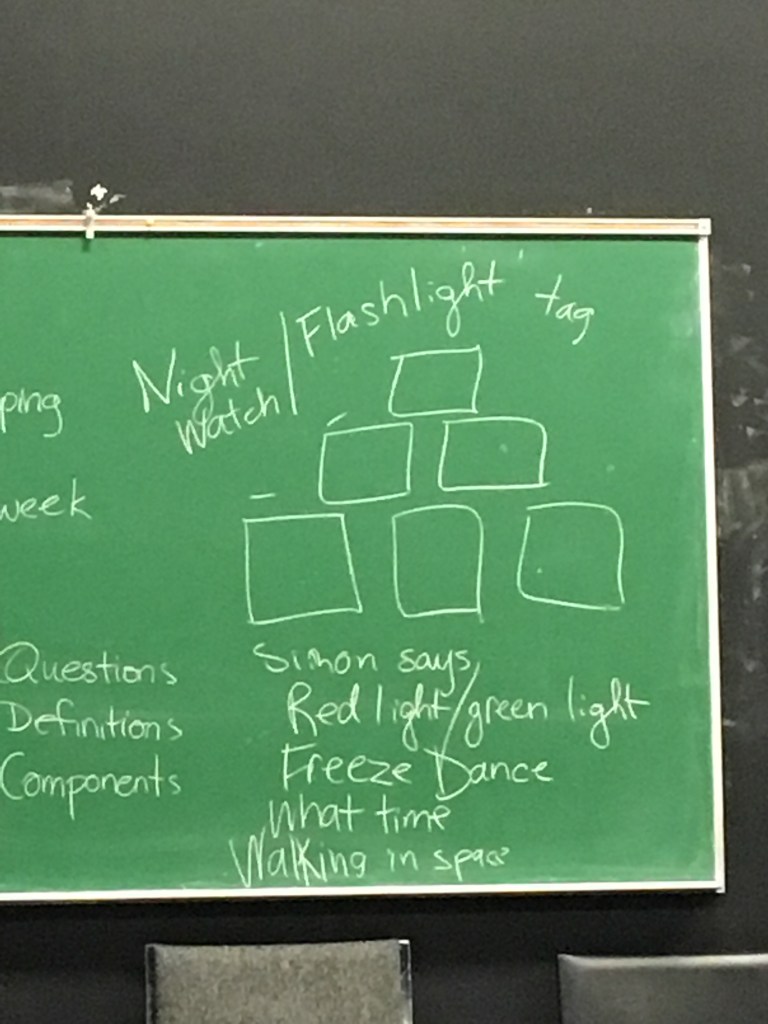 Night
Watch
Flashlight tag
ping
week
Questions
Definitions
Components
Simon says,
Red light/green light
Freeze Dance
What time
Walking in space